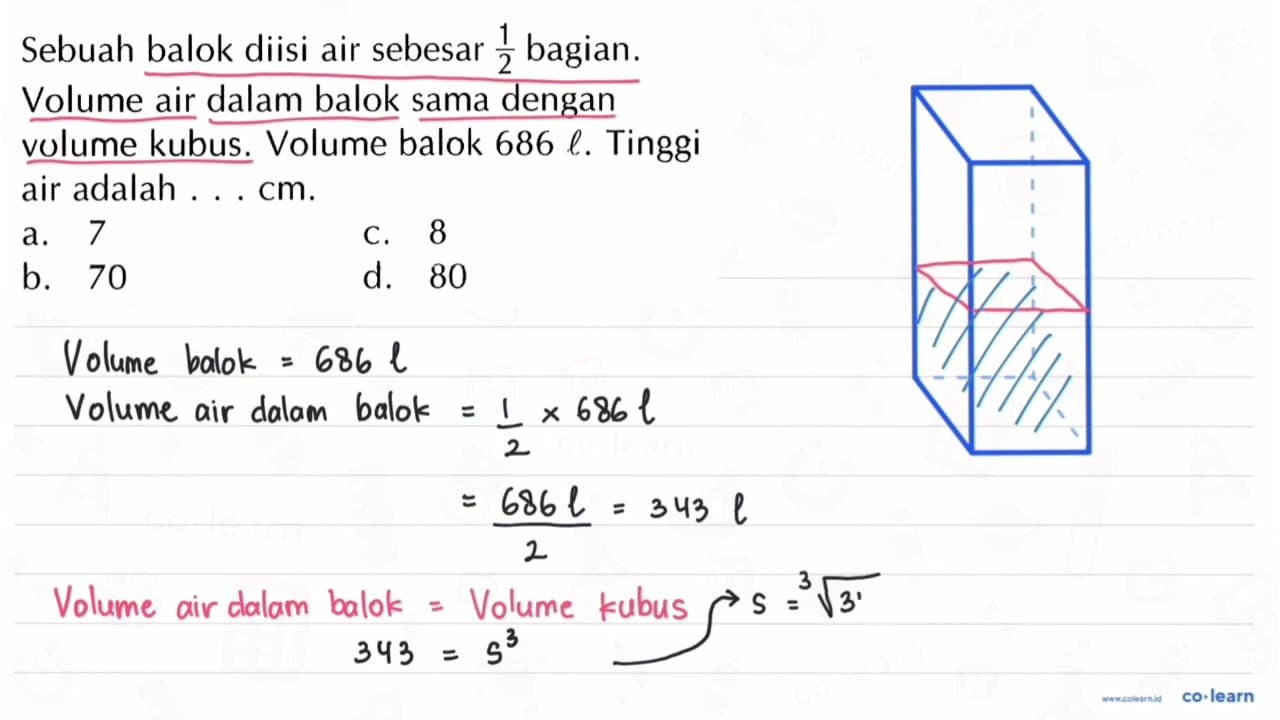 Sebuah balok diisi air sebesar 1/2 bagian.
Volume air dalam balok sama dengan
volume kubus. Volume balok 686 ℓ. Tinggi
air adalah . . . cm.
a. 7 c. 8
b. 70 d. 80
Volume balok = 686 l
Volume air dalam balok = 1/2 × 686 l
= 686 l / 2 = 343 l
Volume air dalam balok = Volume kubus → s = ³√3
343 = s³
www.colearn.id co·learn